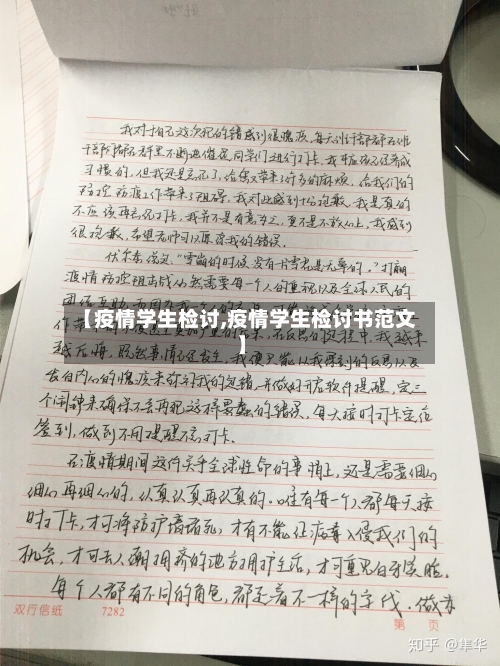 我对于自己这次犯的错感到很愧疚,每天班干部都在班
干部群群里不断地催促同学们进行打卡,我早应该已经养成
习惯的,但我还是忘记了,给大家带来了许多的麻烦,给我们的
防控防疫工作带来了阻碍,我对此感到十分抱歉,我是真的
不应该再忘记打卡,我并不是有意为之,更不是不放心上,我感到
很抱歉,希望老师可以原谅我的错误。
伏尔泰说过:“雪崩的时候没有一片雪花是无辜的。”打赢
疫情防控阻击战必然需要每一个人的重视以及全球人民的
【疫情学生检讨,疫情学生检讨书范文
】
越后悔,既然事情已经发生,我便只能从我深刻的反思以及
发自内心的愧疚来弥补我的过错,并做好开启软件提醒,定三
个闹钟来确保不会再犯这样愚蠢的错误,每天按时打卡定位
签到,做到不用提醒不忘打卡。
在疫情期间这件关乎全球性命的事情上,还是需要细心
细心再细心的,认真认真再认真的。唯有每一个人都每天按
时打卡,才可将防护墙堵死,才有不能让病毒入侵我们的
机会,才可去人潮拥挤的地方拥护生活,才可重见白牙笑脸。
每个人都有不同的角色,都走着不一样的
双行信纸 7282 第 页
知乎 @隼华